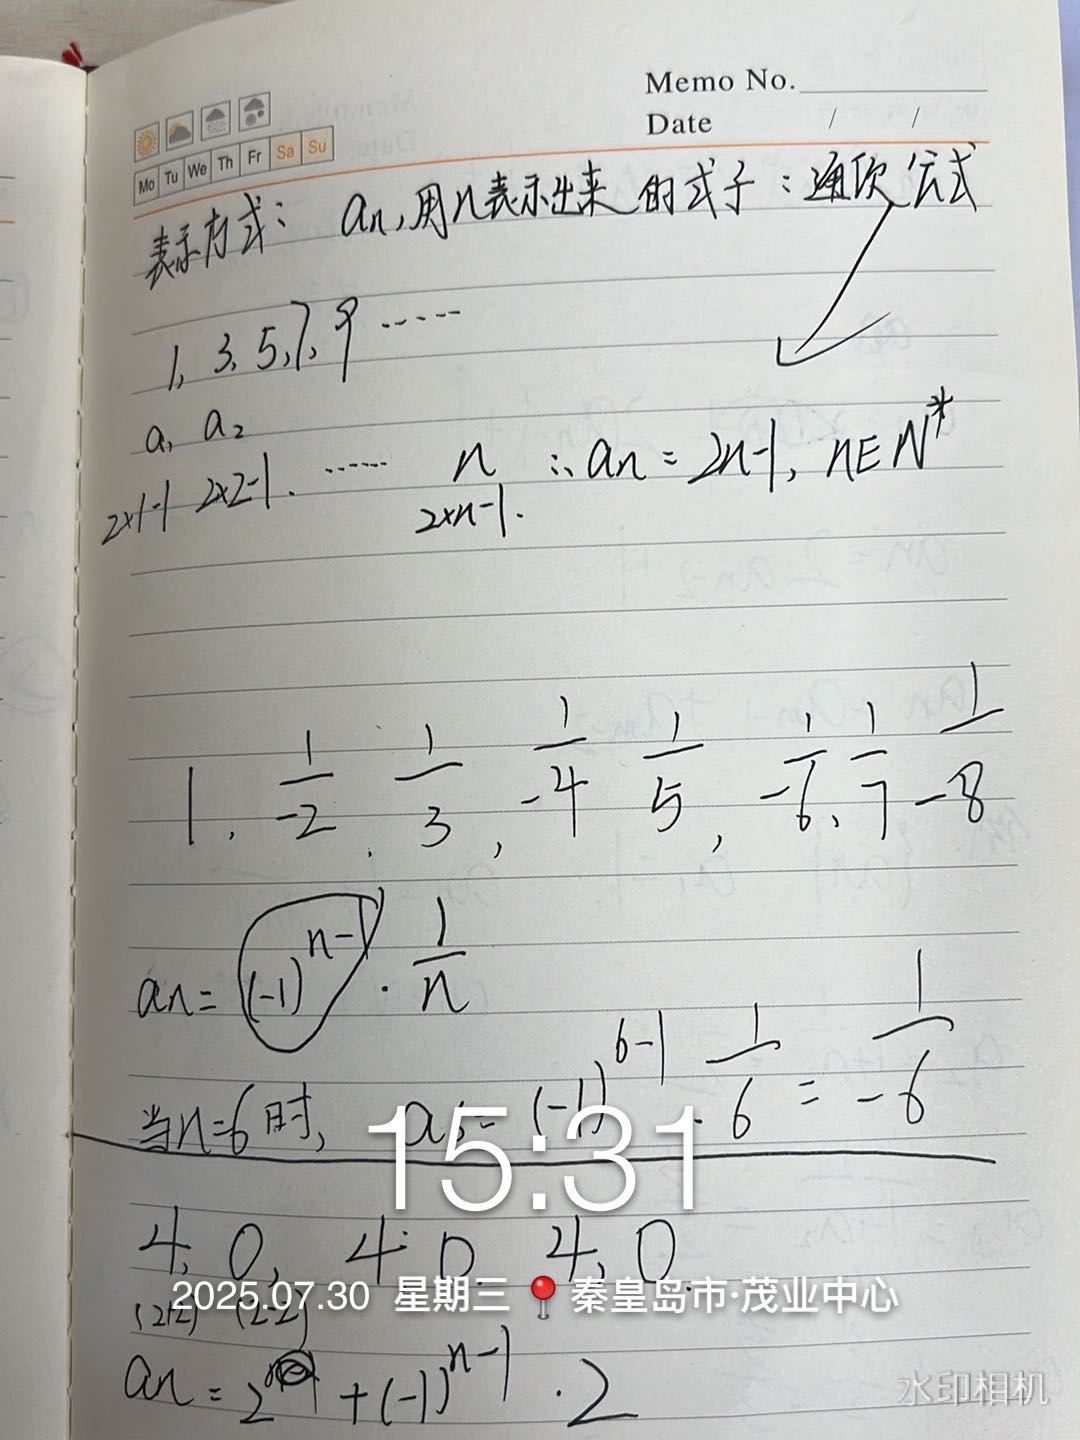 Memo No.
Date / /
Mo Tu We Th Fr Sa Su
表示方式: an,用n表示出来的式子:通项公式
1, 3, 5, 7, 9 ······
a₁ a₂
2×1-1 2×2-1. ······ n ∴an=2n-1, n∈N*
2×n-1.
1, 1/-2, 1/3, 1/-4, 1/5, 1/-6, 1/7 1/-8
an=(-1)^(n-1)·1/n
当n=6时, a6=(-1)^(6-1)·1/6=1/-6
15:31
4, 0, 4, 0, 4, 0
2025.07.30 星期三 秦皇岛市·茂业中心
(2+2) (2-2)
an=2+(-1)^(n-1)·2
水印相机